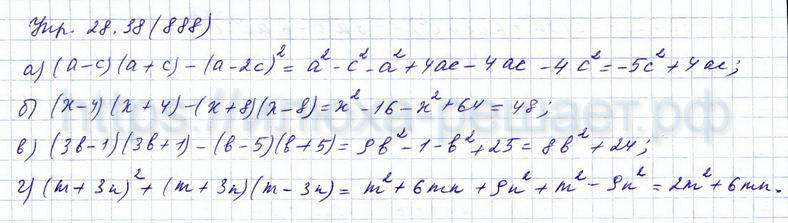 Упр. 28.38(888)
а) (a-c)(a+c)-(a-2c)² = a²-c²-a²+4ac-4ac-4c² = -5c²+4ac;
б) (x-4)(x+4)-(x+8)(x-8) = x²-16-x²+64 = 48;
в) (3b-1)(3b+1)-(b-5)(b+5) = 9b²-1-b²+25 = 8b²+24;
г) (m+3n)²+(m+3n)(m-3n) = m²+6mn+9n²+m²-9n² = 2m²+6mn.